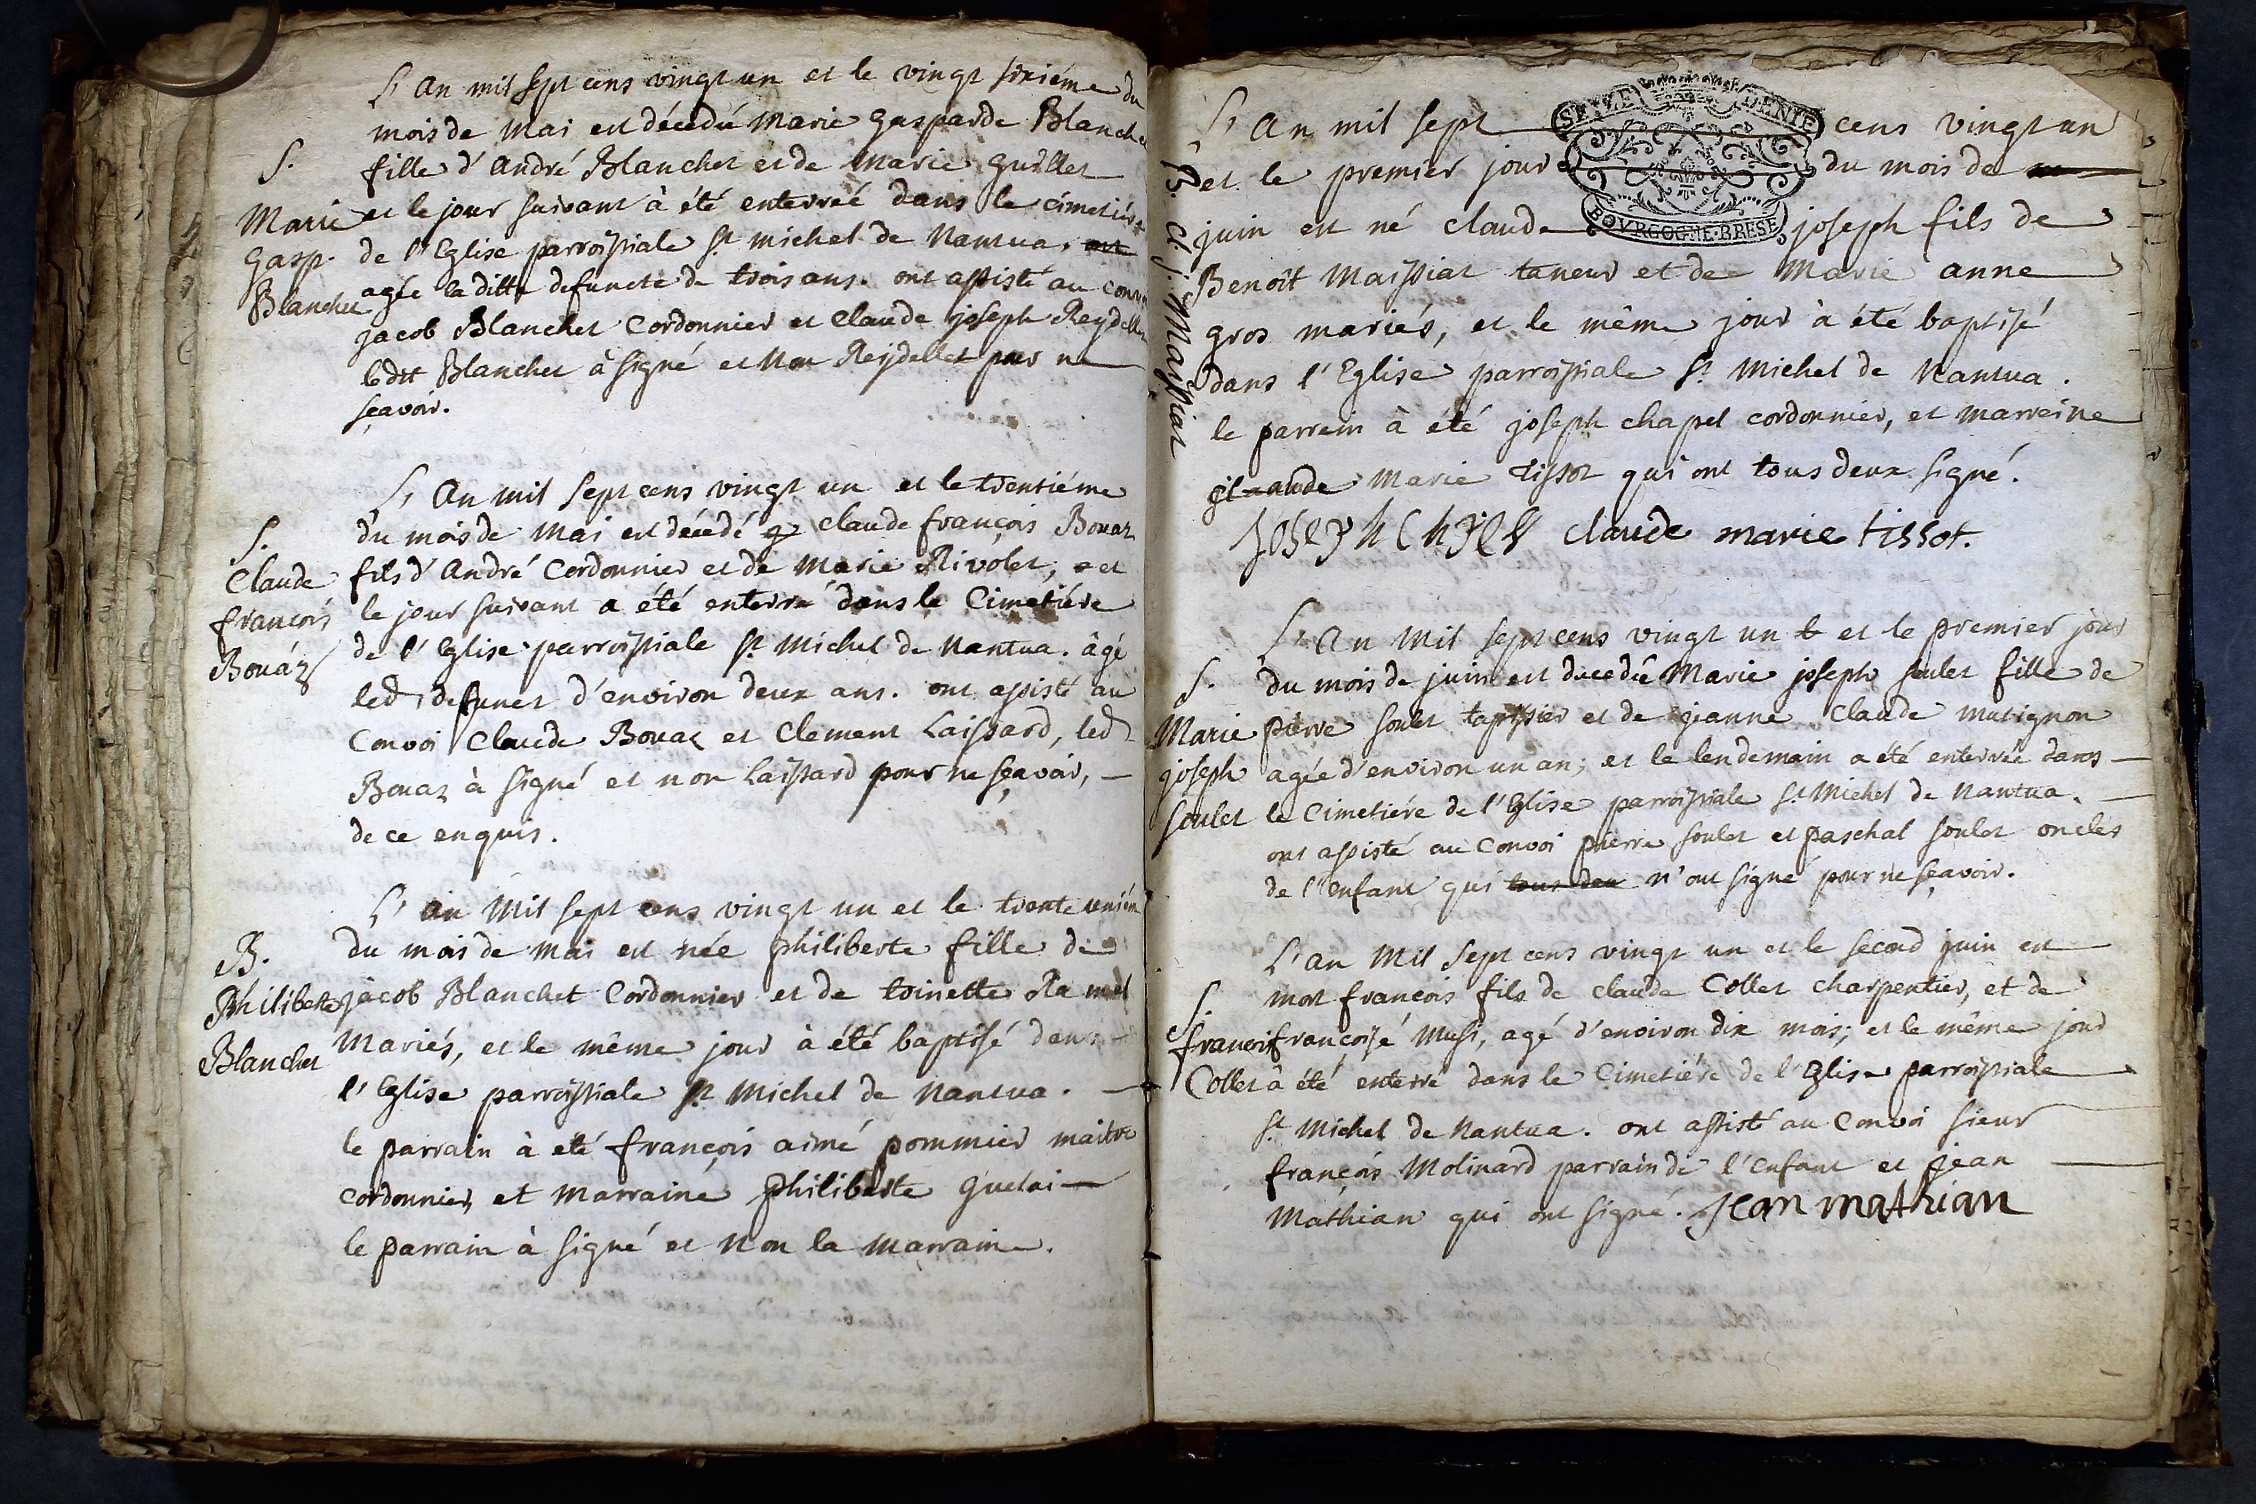 L'An mil sept cens vingt un et le vingt sixiéme du
mois de Mai est décedée Marie Gasparde Blanchet
S. fille d'André Blanchet et de Marie Guillet
Marie et le jour suivant à été enterreé dans le cimetiére
Gasp. de l'Eglise parroissiale St Michel de Nantua.
Blanchet agée la ditte defuncte de trois ans. ont assisté au convoi
Jacob Blanchet Cordonnier et Claude joseph Reydellet
ledit Blanchet à signé et Non Reydellet pour ne
sçavoir.
L'An mil sept cens vingt un et le trentiéme
du mois de Mai est décedé claude françois Bouaz
S.
Claude fils d'André Cordonnier et de Marie Rivolet, et
françois le jour suivant a été enterré dans le Cimetiére
Bouáz de l'Eglise parroissiale St Michel de Nantua. âgé
led defunct d'environ deux ans. ont assisté au
Convoi Claude Bouaz et Clement Laissard, led
Bouaz à signé et non Laissard pour ne sçavoir,
de ce enquis.
L'An Mil sept cens vingt un et le trente uniém
du mois de Mai est née philiberte fille de
B.
Philiberte jacob Blanchet Cordonnier et de toinette Ramel
Blanchet Mariés, et le même jour à été baptisé dans
l'Eglise parroissiale St Michel de Nantua.
le parrain à été françois aimé pommier maitre
cordonnier, et Marraine philiberte guelai
le parrain à signé et Non la Marraine.
SEIZE DENIE
BOVRGOGNE.BRESE
B. cl. j. Maissiat
L'An mil sept cens vingt un
et le premier jour du mois de
juin est né claude joseph fils de
Benoît Maissiat taneur et de Marie anne
gros mariés, et le même jour à été baptisé
dans l'Eglise parroissiale St Michel de Nantua.
le parrein à été joseph chapel cordonnier, et marreine
claude Marie Tissot qui ont tous deux signé.
claude marie tissot.
L'An Mil sept cens vingt un et le premier jour
S. du mois de juin est decedée Marie joseph soulet fille de
Marie pierre soulet tapissier et de jeanne Claude mutignon
joseph agée d'environ un an; et le lendemain a été enterrée dans
soulet le Cimetiére de l'Eglise parroissiale St Michel de Nantua.
ont assisté au Convoi pierre soulet et paschal soulet oncles
de l'enfant qui tous deu n'ont signé pour ne sçavoir.
L'An Mil sept cens vingt un et le second juin est
mort françois fils de claude Collet charpentier, et de
S.
françois françoise Musi, agé d'environ dix mois; et le même jour
Collet à été enterré dans le Cimetiére de l'Eglise parroissiale
St Michel de Nantua. ont assisté au Convoi sieur
françois Molinard parrain de l'enfant et jean
Mathian qui ont signé. Jean mathian